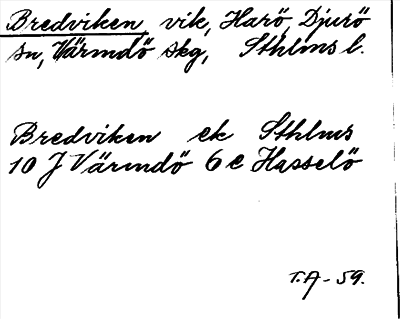 Bredviken, vik, Harö, Djurö
sn, Värmdö skg, Sthlms l.
Bredviken ek Sthlms
10 J Värmdö 6 e Hasselö
T.A - 59.